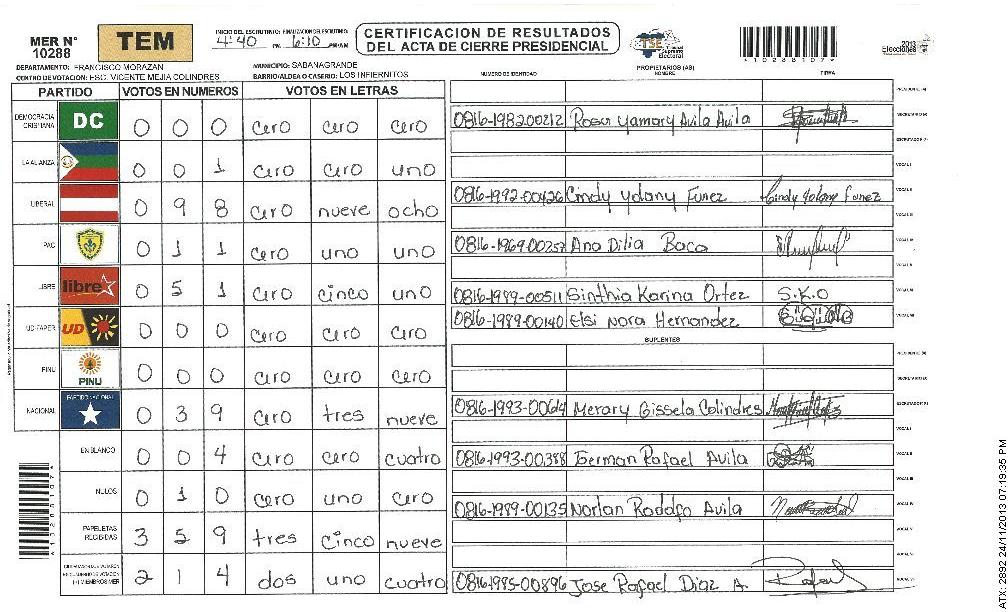 MER N° 10288
TEM
INICIO DEL ESCRUTINIO: FINALIZACION DEL ESCRUTINIO:
4:40 PM 6:10 PM/AM
CERTIFICACION DE RESULTADOS
DEL ACTA DE CIERRE PRESIDENCIAL
TSE Tribunal Supremo Electoral
*10288107*
2013 Elecciones
DEPARTAMENTO: FRANCISCO MORAZAN
MUNICIPIO: SABANAGRANDE
CENTRO DE VOTACION: ESC. VICENTE MEJIA COLINDRES
BARRIO/ALDEA O CASERIO: LOS INFIERNITOS
PROPIETARIOS (AS)
NUMERO DE IDENTIDAD NOMBRE FIRMA
PARTIDO VOTOS EN NUMEROS VOTOS EN LETRAS
DEMOCRACIA CRISTIANA DC 0 0 0 cero cero cero
LA ALIANZA 0 0 1 cero cero uno
LIBERAL 0 9 8 cero nueve ocho
PAC 0 1 1 cero uno uno
LIBRE libre 0 5 1 cero cinco uno
UD-FAPER UD 0 0 0 cero cero cero
PINU PINU 0 0 0 cero cero cero
NACIONAL PARTIDO NACIONAL 0 3 9 cero tres nueve
EN BLANCO 0 0 4 cero cero cuatro
NULOS 0 1 0 cero uno cero
PAPELETAS RECIBIDAS 3 5 9 tres cinco nueve
2 1 4 dos uno cuatro
(+) MIEMBROS MER
PRESIDENTE (A)
0816-1982-00212 Rosa Yamary Avila Avila SECRETARIO (A)
ESCRUTADOR (A)
VOCAL I
0816-1992-00426 Cindy Yolany Funez Cindy Yolany Funez VOCAL II
VOCAL III
0816-1969-00257 Ana Dilia Baca VOCAL IV
VOCAL V
0816-1989-00511 Sinthia Karina Ortez S.K.O VOCAL VI
0816-1989-00140 Elsi Nora Hernandez VOCAL VII
SUPLENTES
PRESIDENTE (A)
SECRETARIO (A)
0816-1993-00614 Merary Gissela Colindres ESCRUTADOR (A)
VOCAL I
0816-1993-00388 German Rafael Avila VOCAL II
VOCAL III
0816-1989-00135 Norlan Rodolfo Avila VOCAL IV
VOCAL V
VOCAL VI
0816-1985-00896 Jose Rafael Diaz A. Rafael VOCAL VII
*10288107*
ATX: 2992 24/11/2013 07:19:35 PM